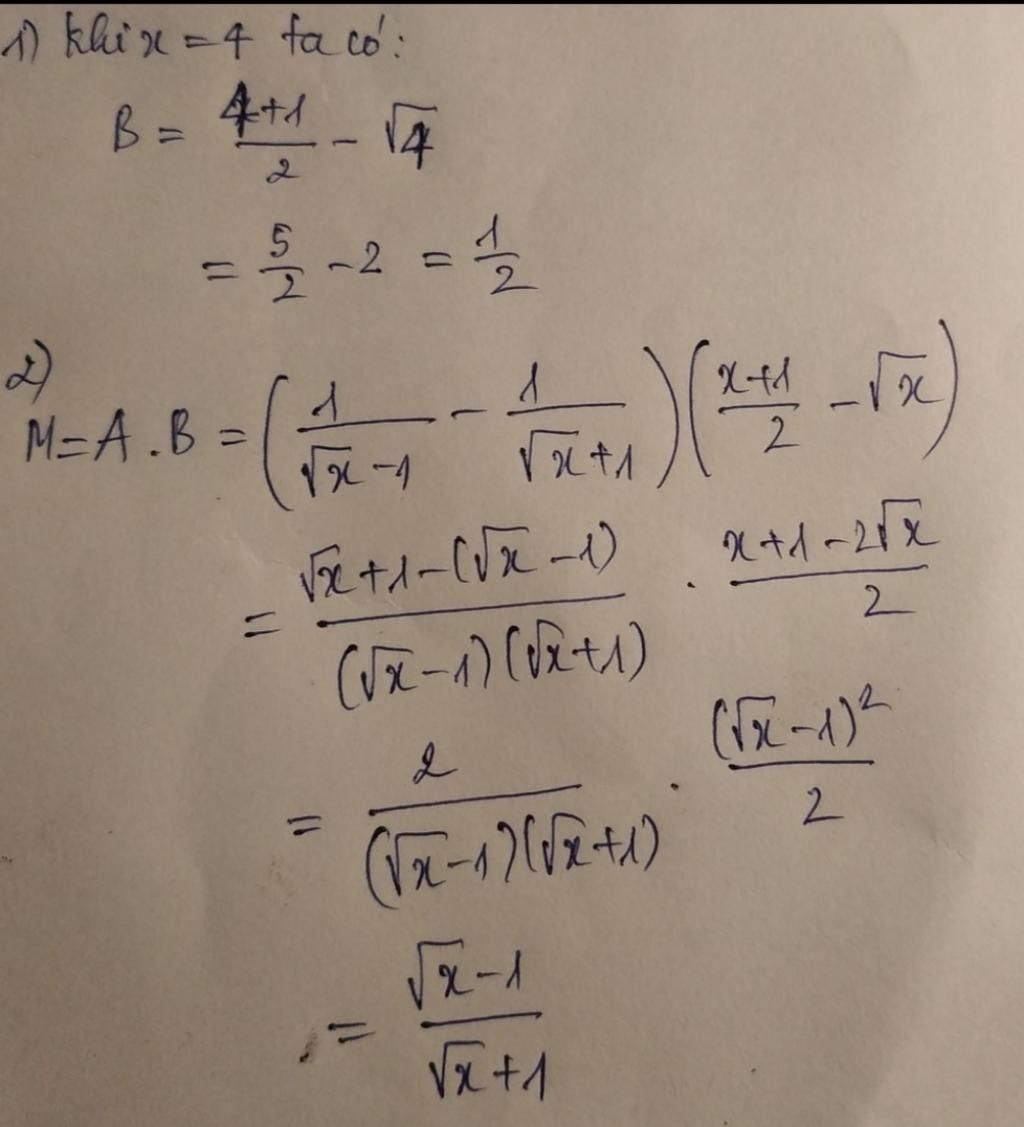 1) khi x = 4 ta có:
B = \frac{4+1}{2} - \sqrt{4}
= \frac{5}{2} - 2 = \frac{1}{2}
2)
M = A . B = \left( \frac{1}{\sqrt{x}-1} - \frac{1}{\sqrt{x}+1} \right) \left( \frac{x+1}{2} - \sqrt{x} \right)
= \frac{\sqrt{x}+1-(\sqrt{x}-1)}{(\sqrt{x}-1)(\sqrt{x}+1)} . \frac{x+1-2\sqrt{x}}{2}
= \frac{2}{(\sqrt{x}-1)(\sqrt{x}+1)} . \frac{(\sqrt{x}-1)^2}{2}
= \frac{\sqrt{x}-1}{\sqrt{x}+1}